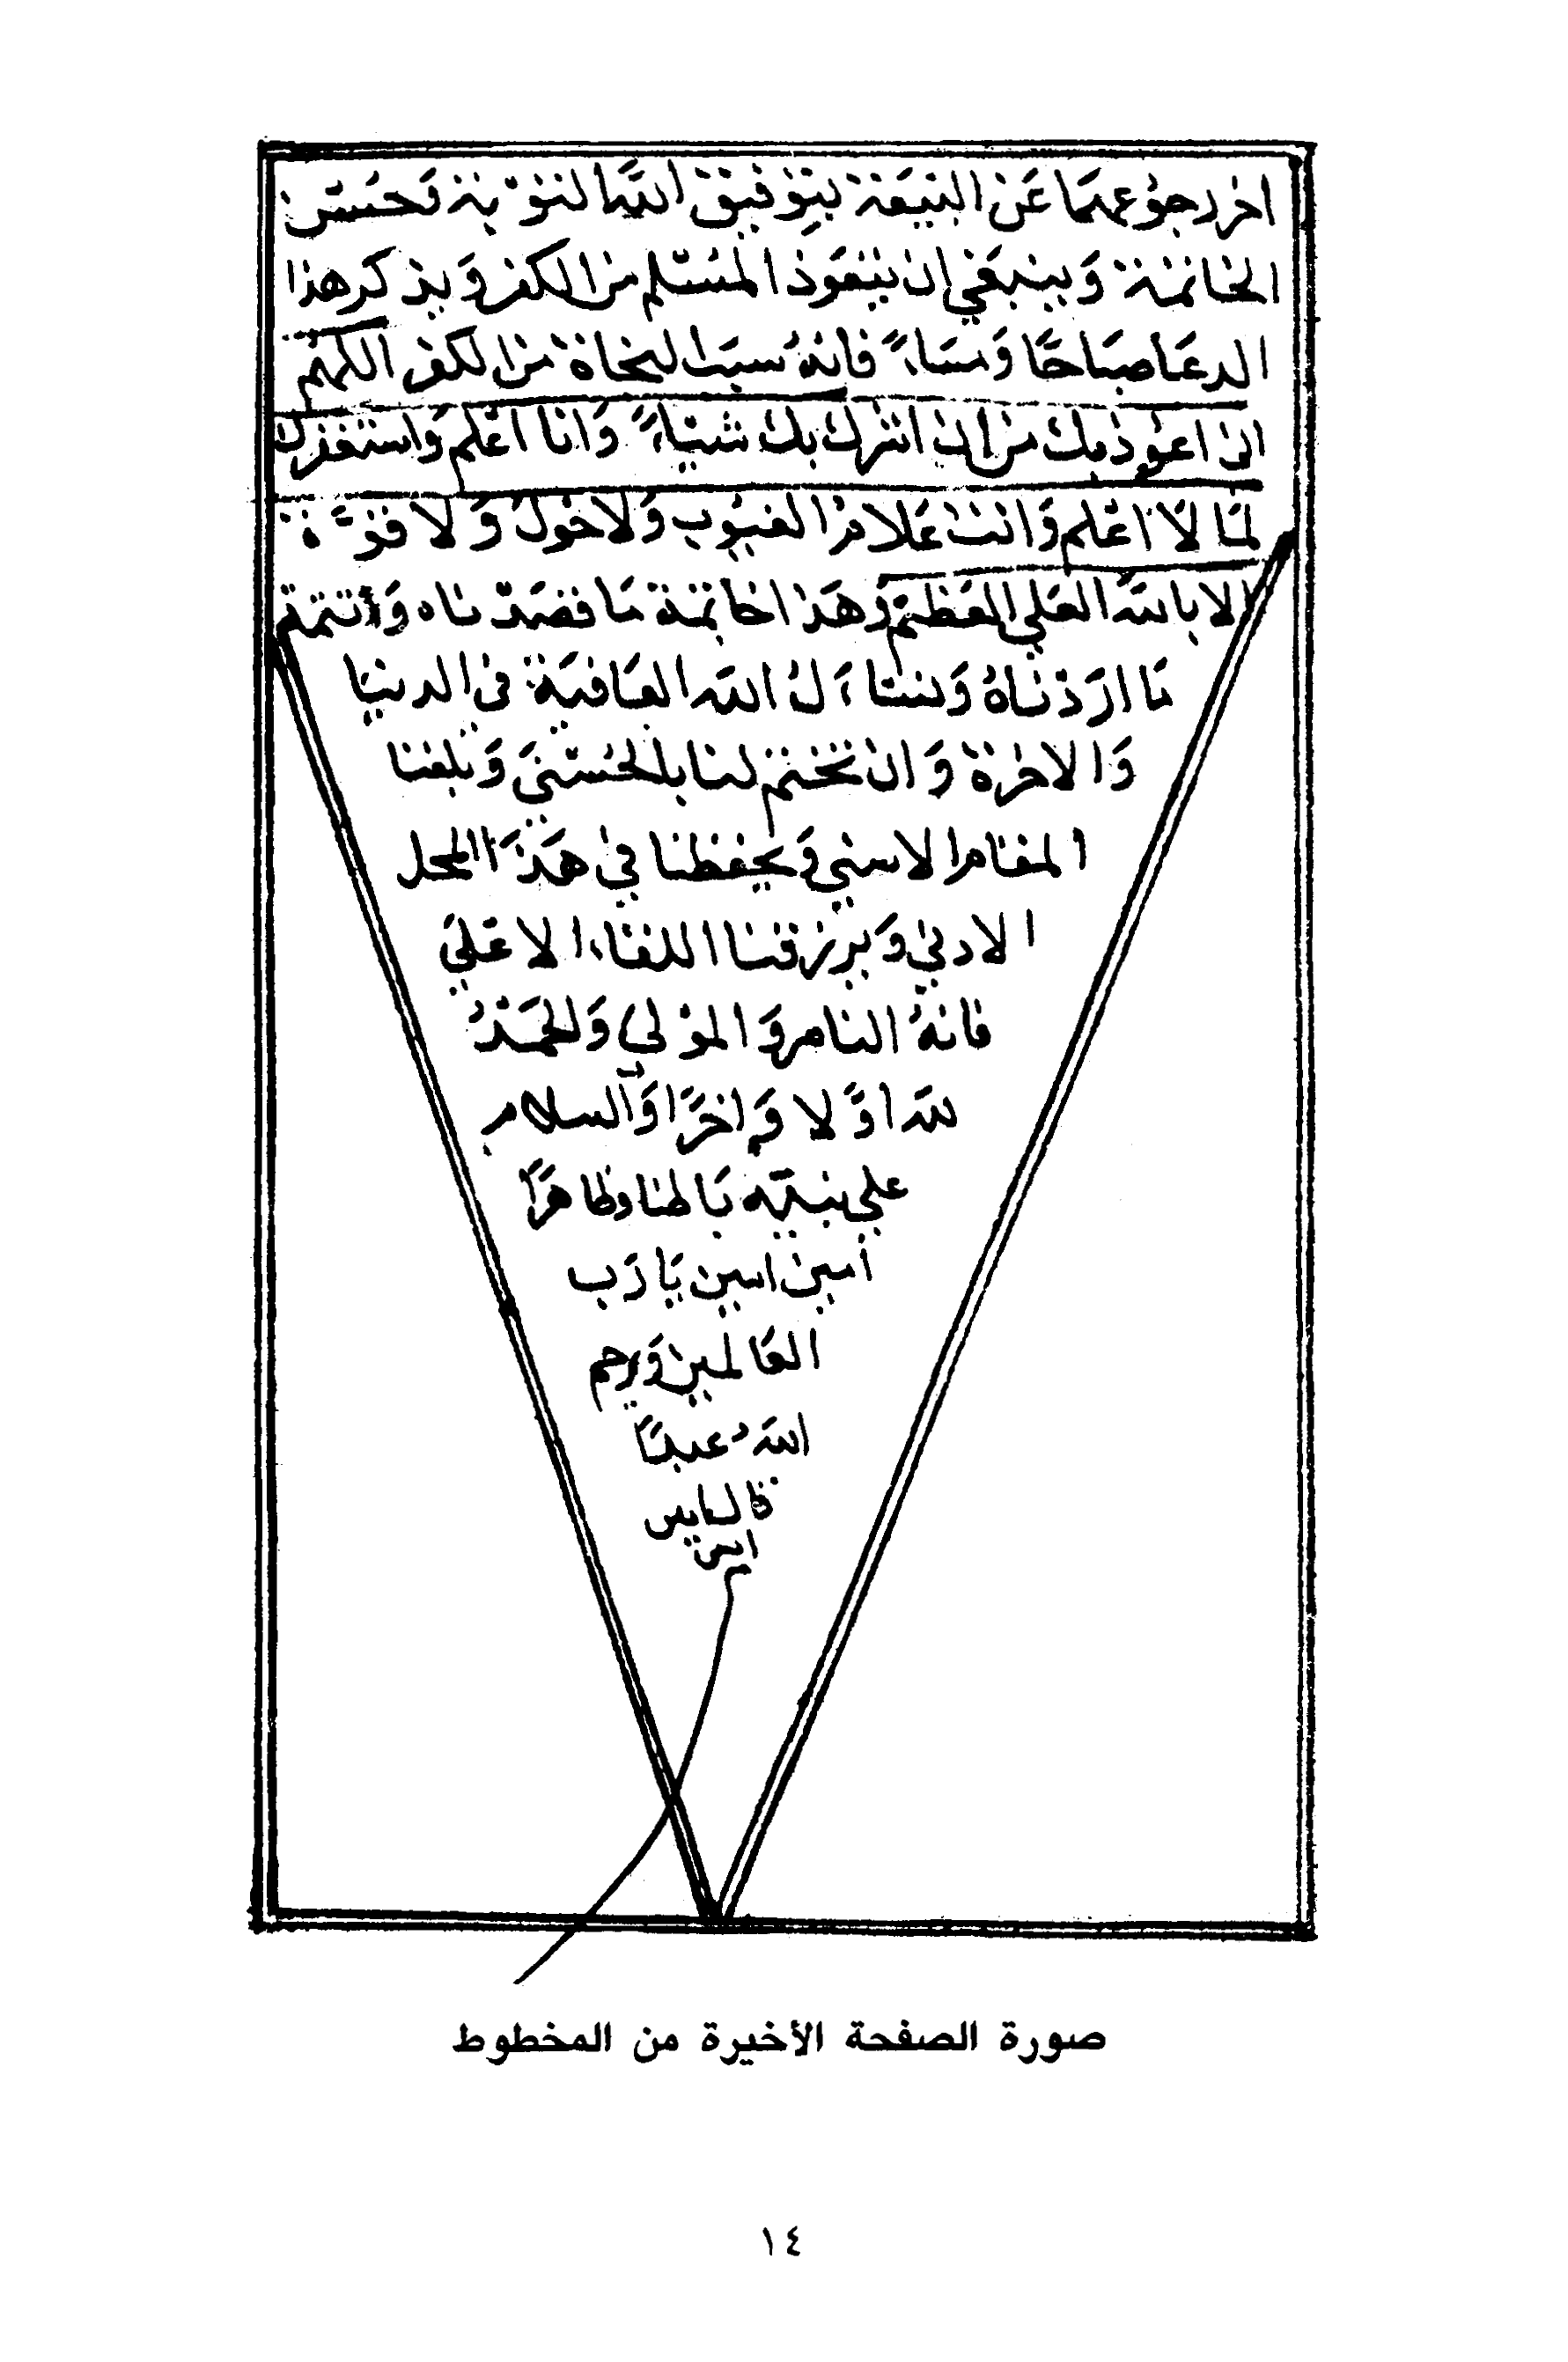 اخر رجوعهما عَن البيعة بتوفيق الله التوبة وَحسُن
الخاتمة وَينبغي ان يتعوذ المسْلم من الكفر وَيذكر هذا
الدعَا صبَاحًا وَمسَاءً فانهُ سبَب النجاة من الكفر اللهم
اني اعوذ بك من ان اشرك بك شيئاً وَانا اعْلم وَاستغفرك
لمَا لاَ اعْلم وَانت عَلام الغيُوب وَلاحَوْل وَلا قوّة
الا بالله العَلي العَظيْم وَهَذا خاتمة مَا قصَدْناه وَتتمة
مَا ارَدْناهُ وَنسَاءلُ الله العَافيَة في الدنيَا
وَالاخرة وَان تختم لنا بالحُسْنَي وَيلغنا
المقام الاسني وَيحفظنا في هَذَا المحل
الادني وَيرزقنا اللقاء الاعْلَي
فانهُ الناصر وَالموْلي وَالحمَدْ
لله اوَّلا وَاخرًا وَالسلام
علي نبيّه بَاطنا وظاهرًا
امين امين يَا رَب
العَالمين وَيرحم
اللهُ عبدًا
قال
امين
صورة الصفحة الأخيرة من المخطوط
١٤